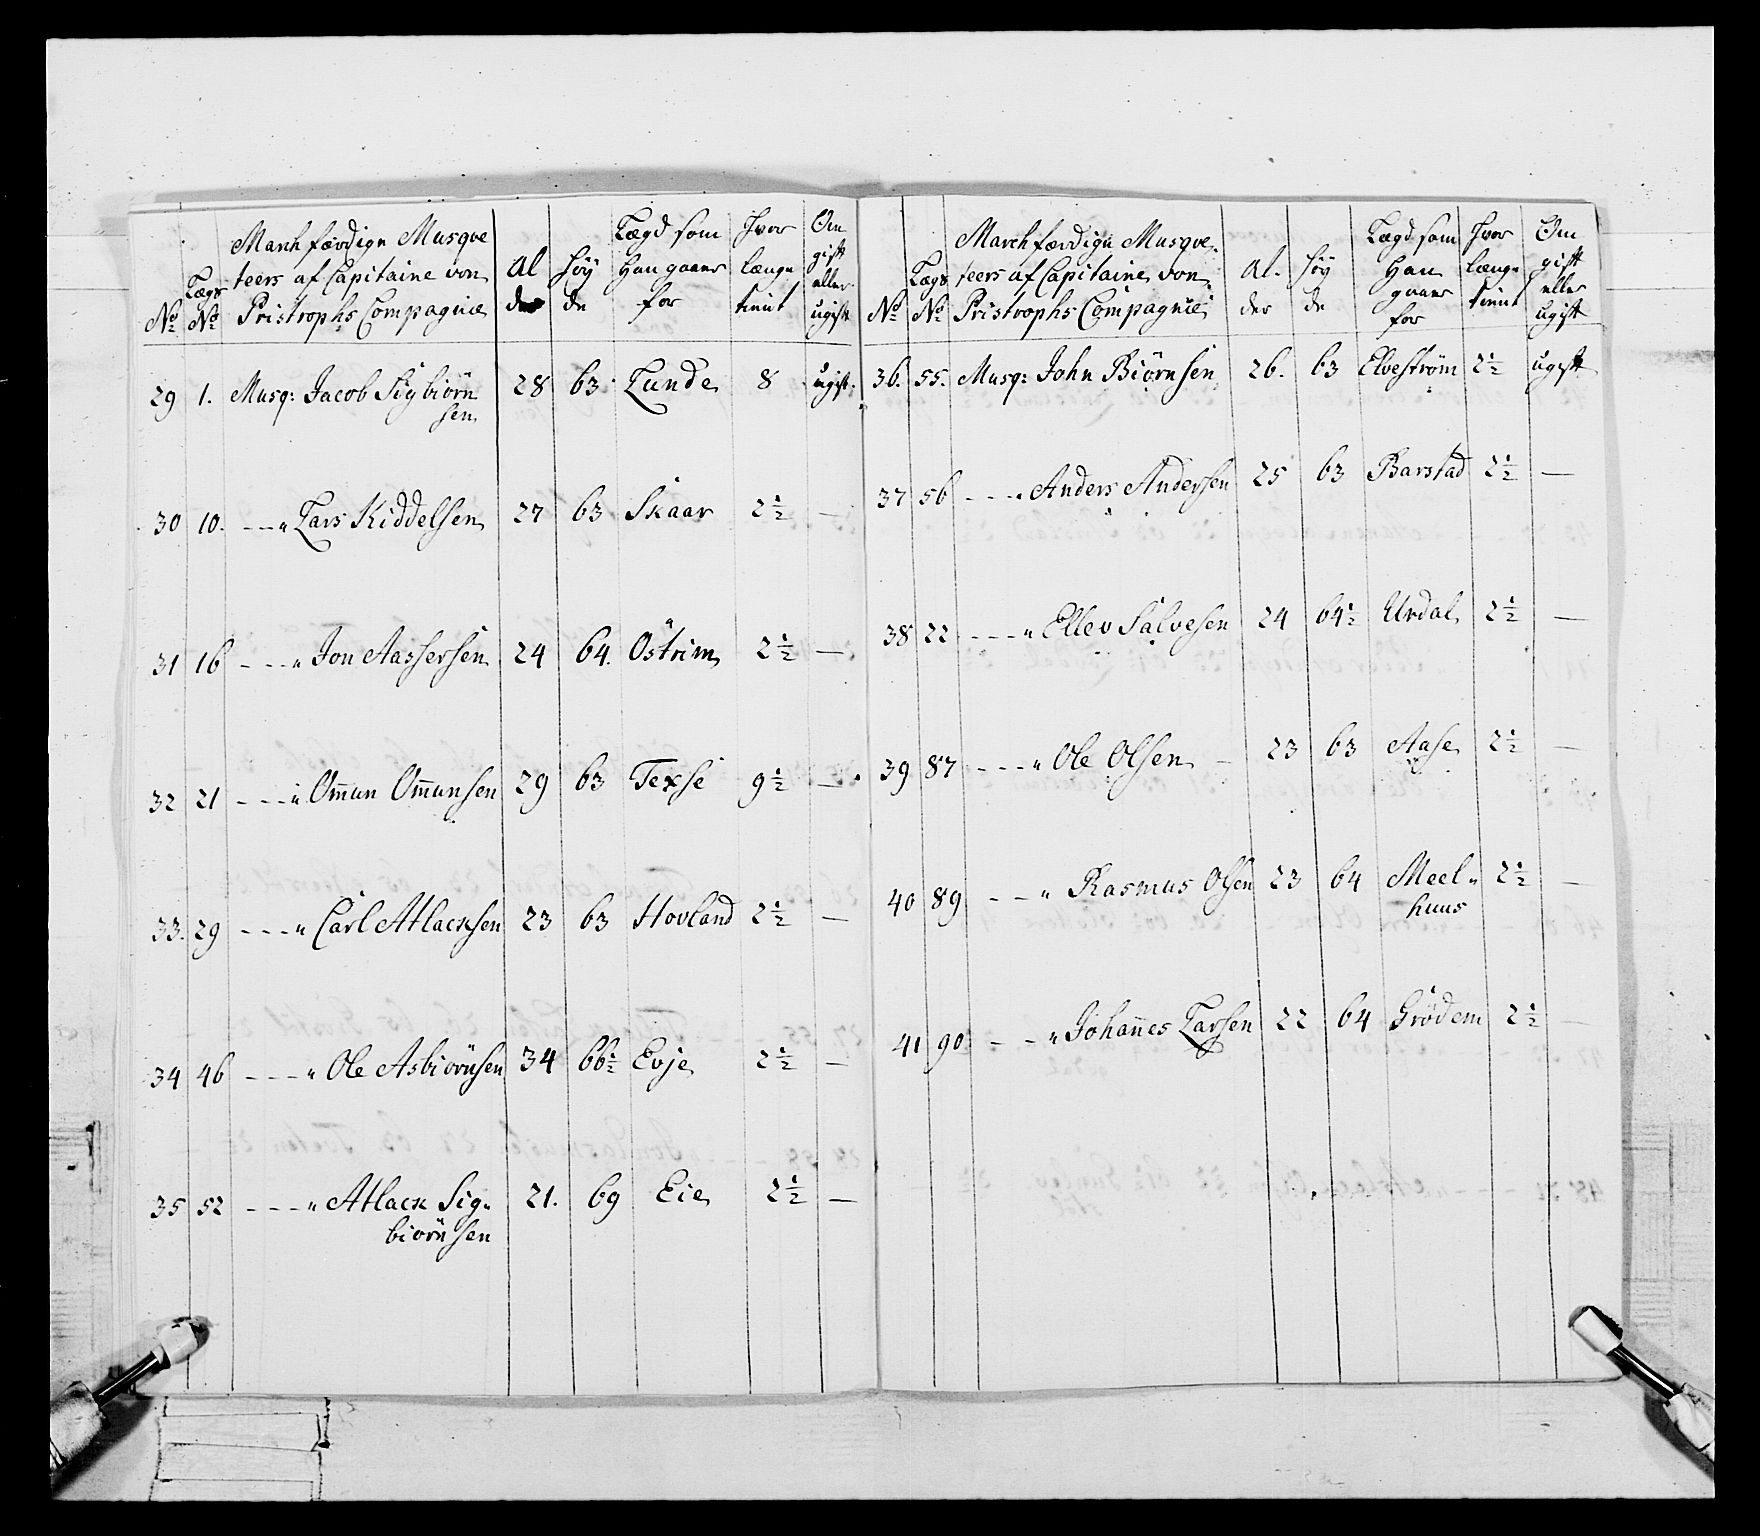 No Lægs No March færdige Musqveteers af Capitaine von Pristrophs Compagnie Alder Høyde Lægd som Han gaaer for Hvor længe tient Om gift eller ugift
29 1. Musq: Jacob Sigbiörnsen 28 63 Lunde 8 ugift.
30 10. - - - " Lars Kiddelsen 27 63 Skaar 2½ —
31 16 - - - " Jon Aassersen 24 64. Östrim 2½ —
32 21 - - - " Om̄un Om̄unsen 29 63 Texse 9½ —
33. 29 - - - " Carl Atlacksen 23 63 Hovland 2½ —
34 46 - - - " Ole Asbiörnsen 34 66½ Evje 2½ —
35 52 - - - " Atlack Sig-
biörnsen 21. 69 Eie 2½ —
No Lægs No March færdige Musqveteers af Capitaine von Pristrophs Compagnie Alder Høyde Lægd som Han gaaer for Hvor længe tient Om gift eller ugift
36. 55. Musq: John Biörnsen 26. 63 Elveström 2½ ugift
37 56 - - - " Anders Andersen 25 63 Barstad 2½ —
38 22 - - - " Ellev Salvesen 24 64½ Urdal 2½ —
39 87 - - - " Ole Olsen 23 63 Aase 2½ —
40 89 - - " Rasmus Olsen 23 64 Meel-
huus 2½ —
41 90 - - " Johan̄es Larsen 22 64 Grödem 2½ —